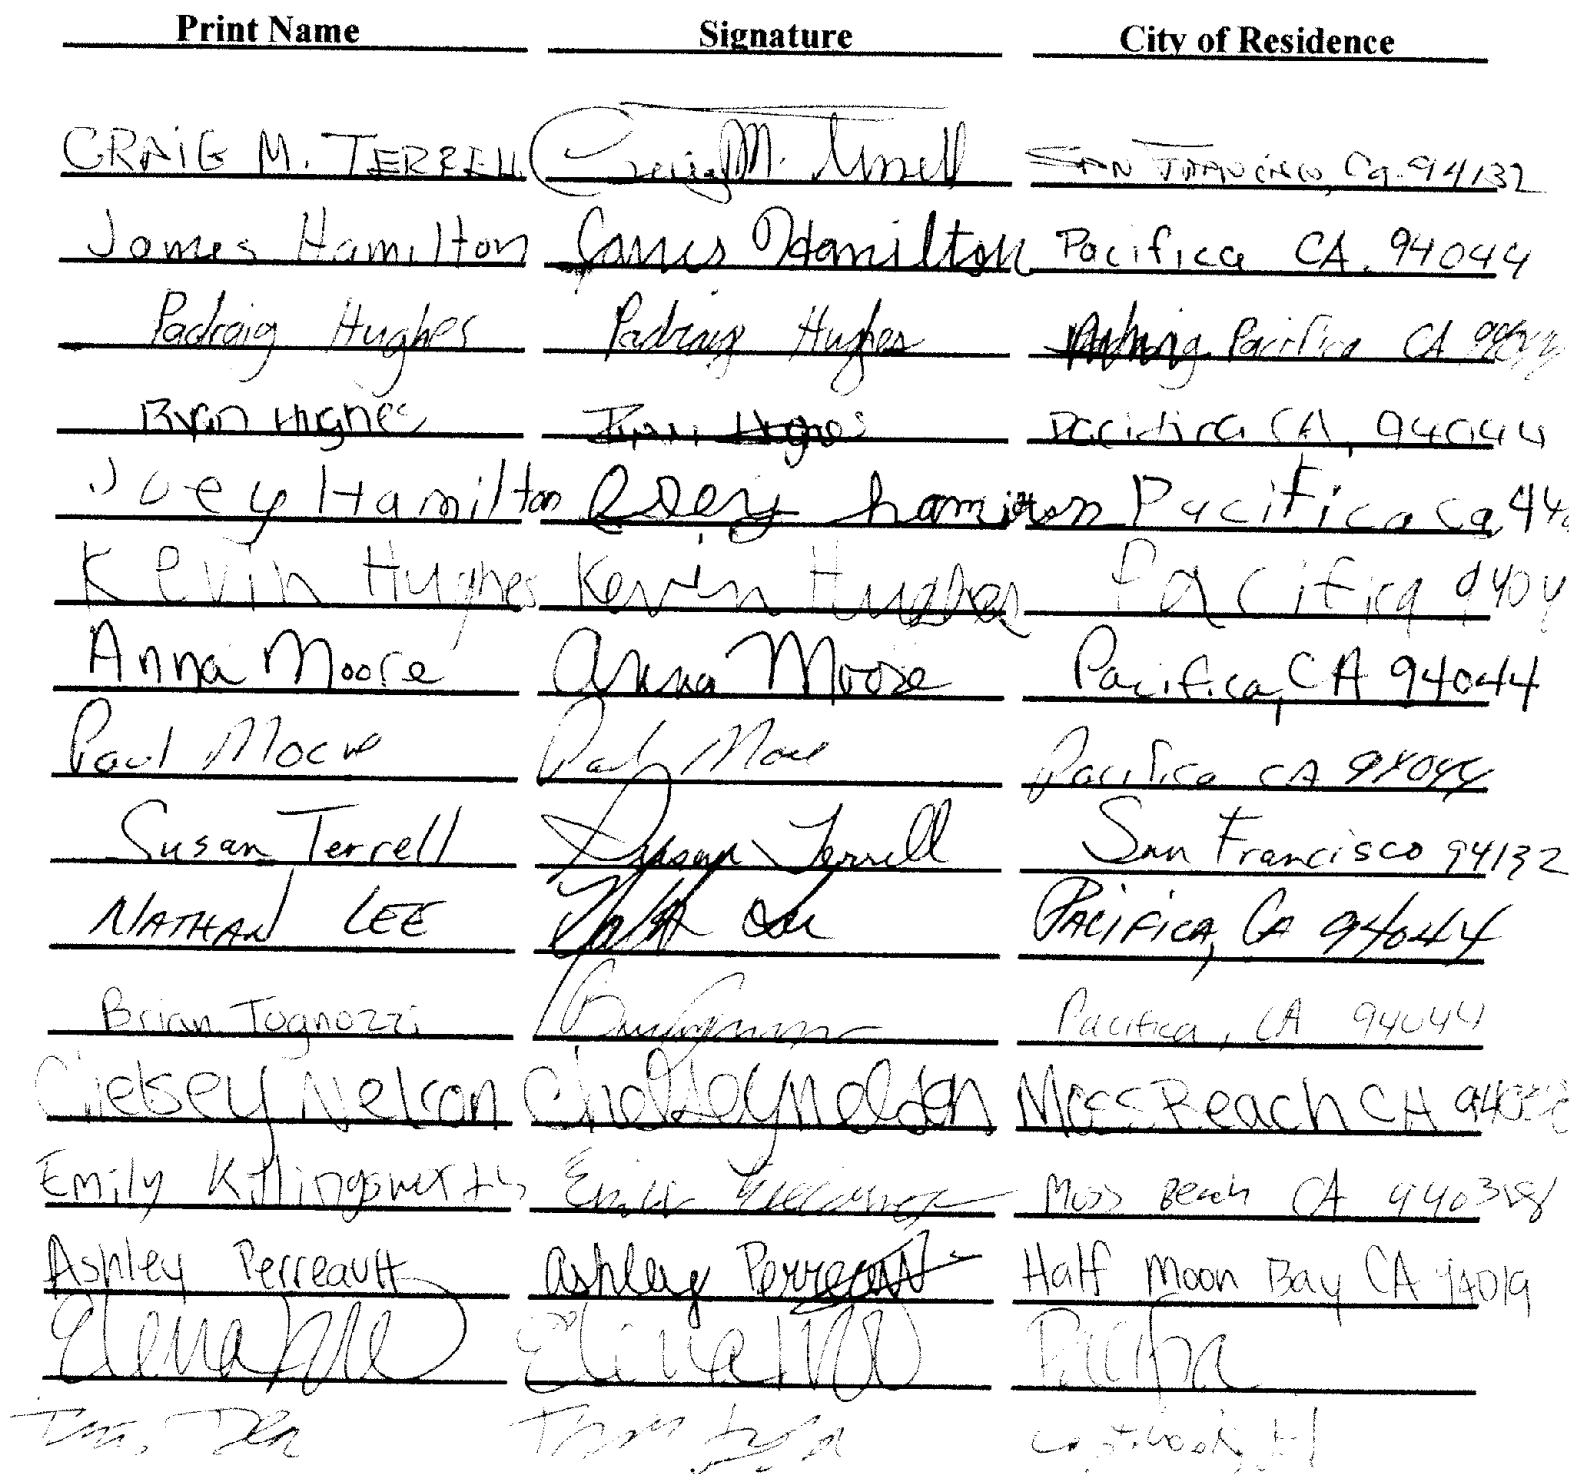 Print Name Signature City of Residence
CRAIG M. TERRELL Craig M. Terrell SAN FRANCISCO, Ca. 94132
James Hamilton James Hamilton Pacifica CA. 94044
Padraig Hughes Padraig Hughes Pacifica CA
Ryan Hughes Ryan Hughes Pacifica CA, 94044
Joey Hamilton Joey hamilton Pacifica Ca
Kevin Hughes Kevin Hughes Pacifica 9404
Anna Moore Anna Moore Pacifica, CA 94044
Paul Moore Paul Moore Pacifica CA 94044
Susan Terrell Susan Terrell San Francisco 94132
NATHAN LEE Nathan Lee PACIFICA, CA 94044
Brian Tognozzi Pacifica, CA 94044
Chelsey Nelson Chelsey nelson Moss Beach CA 94038
Emily Killingsworth Emily Moss Beach CA 94038
Ashley Perreault Ashley Perreault Half Moon Bay CA 94019
Elena Elena Pacifica